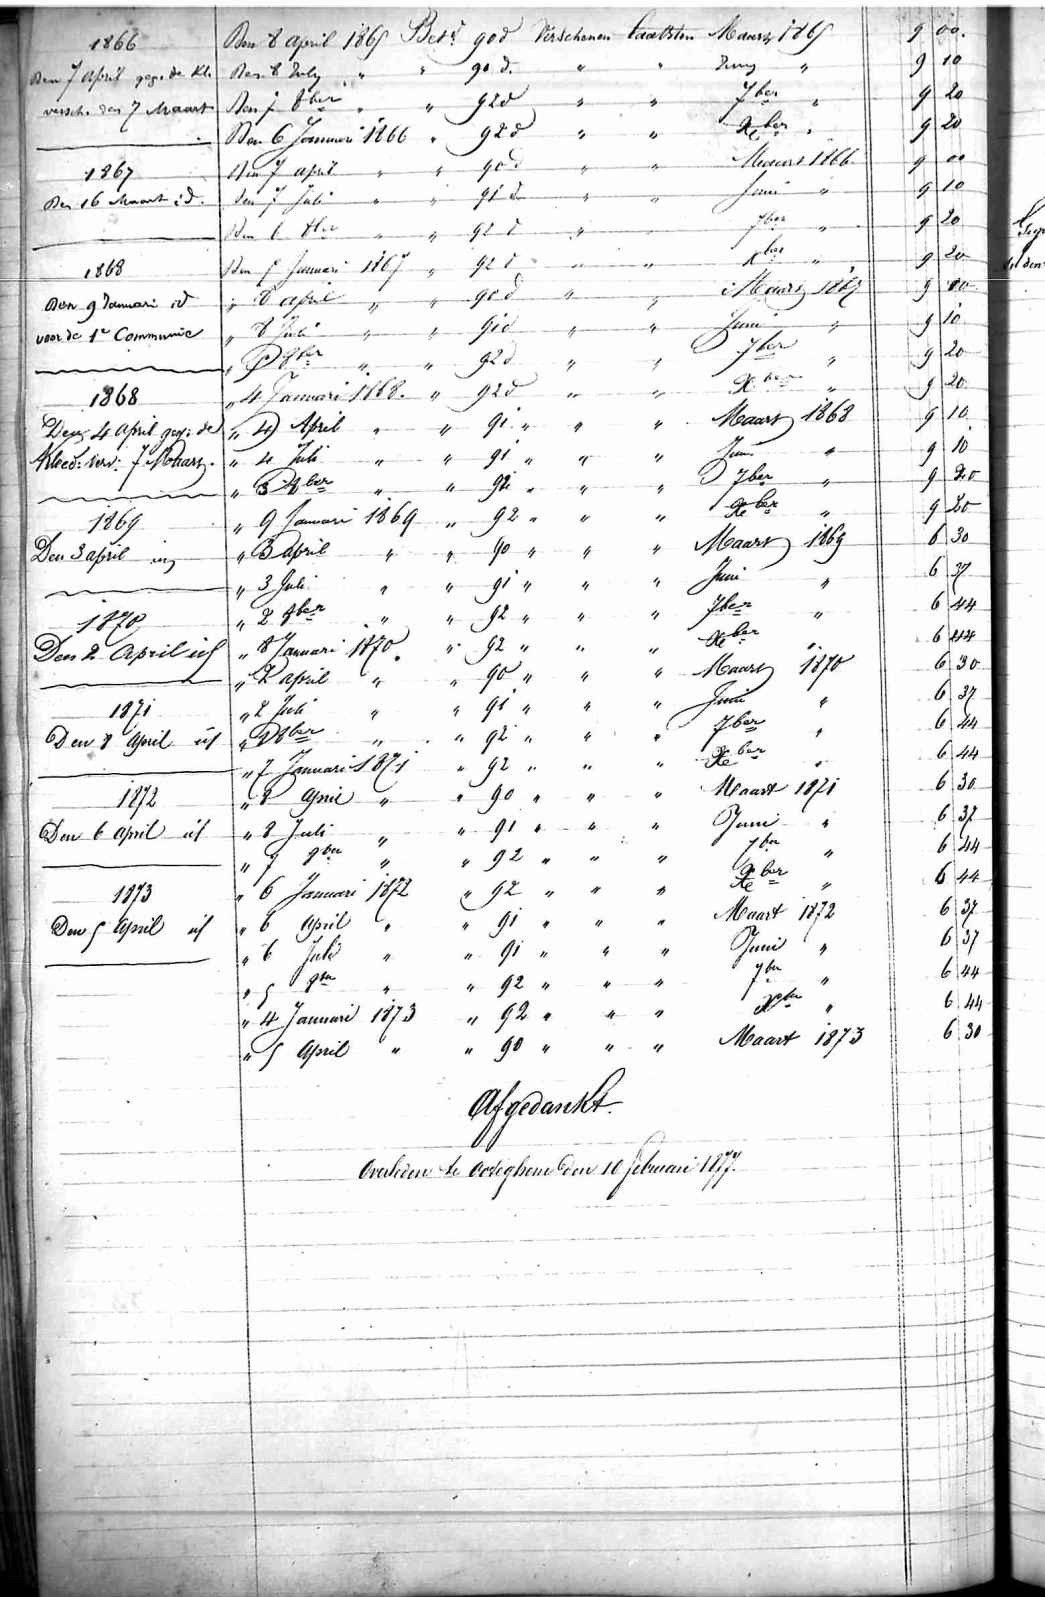 1866
Den 7 April geg. de Kl.
versch. den 7 Maart
1867
Den 16 Maart id.
1868
Den 9 Januari id
voor de 1e Communie
1868
Den 4 April geg: de
Kleed: verv: 7 Maart.
1869
Den 3 april
1870
Den 2 April id
1871
Den 8 April id
1872
Den 6 April id
1873
Den 5 April id
Den 8 april 1865 Bet. 90 d Verschenen laatsten Maart 1865 9 00.
Den 8 July " " 90 d. " " Juny " 9 10
Den 7 8ber " " 92 d " " 7ber " 9 20
Den 6 Januari 1866 " 92 d " " Xber " 9 20
Den 7 april " " 90 d " " Maart 1866 9 00
Den 7 Juli " " 91 d " " Juni " 9 10
Den 6 8ber " " 92 d " " 7ber " 9 20
Den 5 Januari 1867 " 92 d " " Xber " 9 20
" 6 april " " 90 d " " Maart 1867 9 00
" 6 Juli " " 91 d " " Juni " 9 10
" 8ber " " 92 d " " 7ber " 9 20
" 4 Januari 1868. " 92 d " " Xber " 9 20
" 4 April " " 91 " " " Maart 1868 9 10
" 4 Juli " " 91 " " " Juni " 9 10
" 3 8ber " " 92 " " " 7ber " 9 20
" 9 Januari 1869 " 92 " " " Xber " 9 20
" 3 april " " 90 " " " Maart 1869 6 30
" 3 Juli " " 91 " " " Juni " 6 37
" 2 8ber " " 92 " " " 7ber " 6 44
" 8 Januari 1870 " 92 " " " Xber " 6 44
" 2 april " " 90 " " " Maart 1870 6 30
" 2 Juli " " 91 " " " Juni " 6 37
" 8ber " " 92 " " " 7ber " 6 44
" 7 Januari 1871 " 92 " " " Xber " 6 44
" 8 April " " 90 " " " Maart 1871 6 30
" 8 Juli " " 91 " " " Juni " 6 37
" 7 8ber " " 92 " " " 7ber " 6 44
" 6 Januari 1872 " 92 " " " Xber " 6 44
" 6 April " " 91 " " " Maart 1872 6 37
" 6 Juli " " 91 " " " Juni " 6 37
" 5 8ber " " 92 " " " 7ber " 6 44
" 4 Januari 1873 " 92 " " " Xber " 6 44
" 5 April " " 90 " " " Maart 1873 6 30
Afgedankt.
Overleden te Ooteghem den 10 februari 1877.